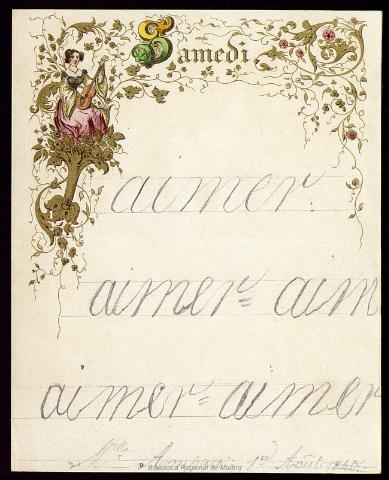 Samedi
aimer.
aimer= aim
aimer= aimer
1er Août 1840.
Biblioteca Regional de Madrid